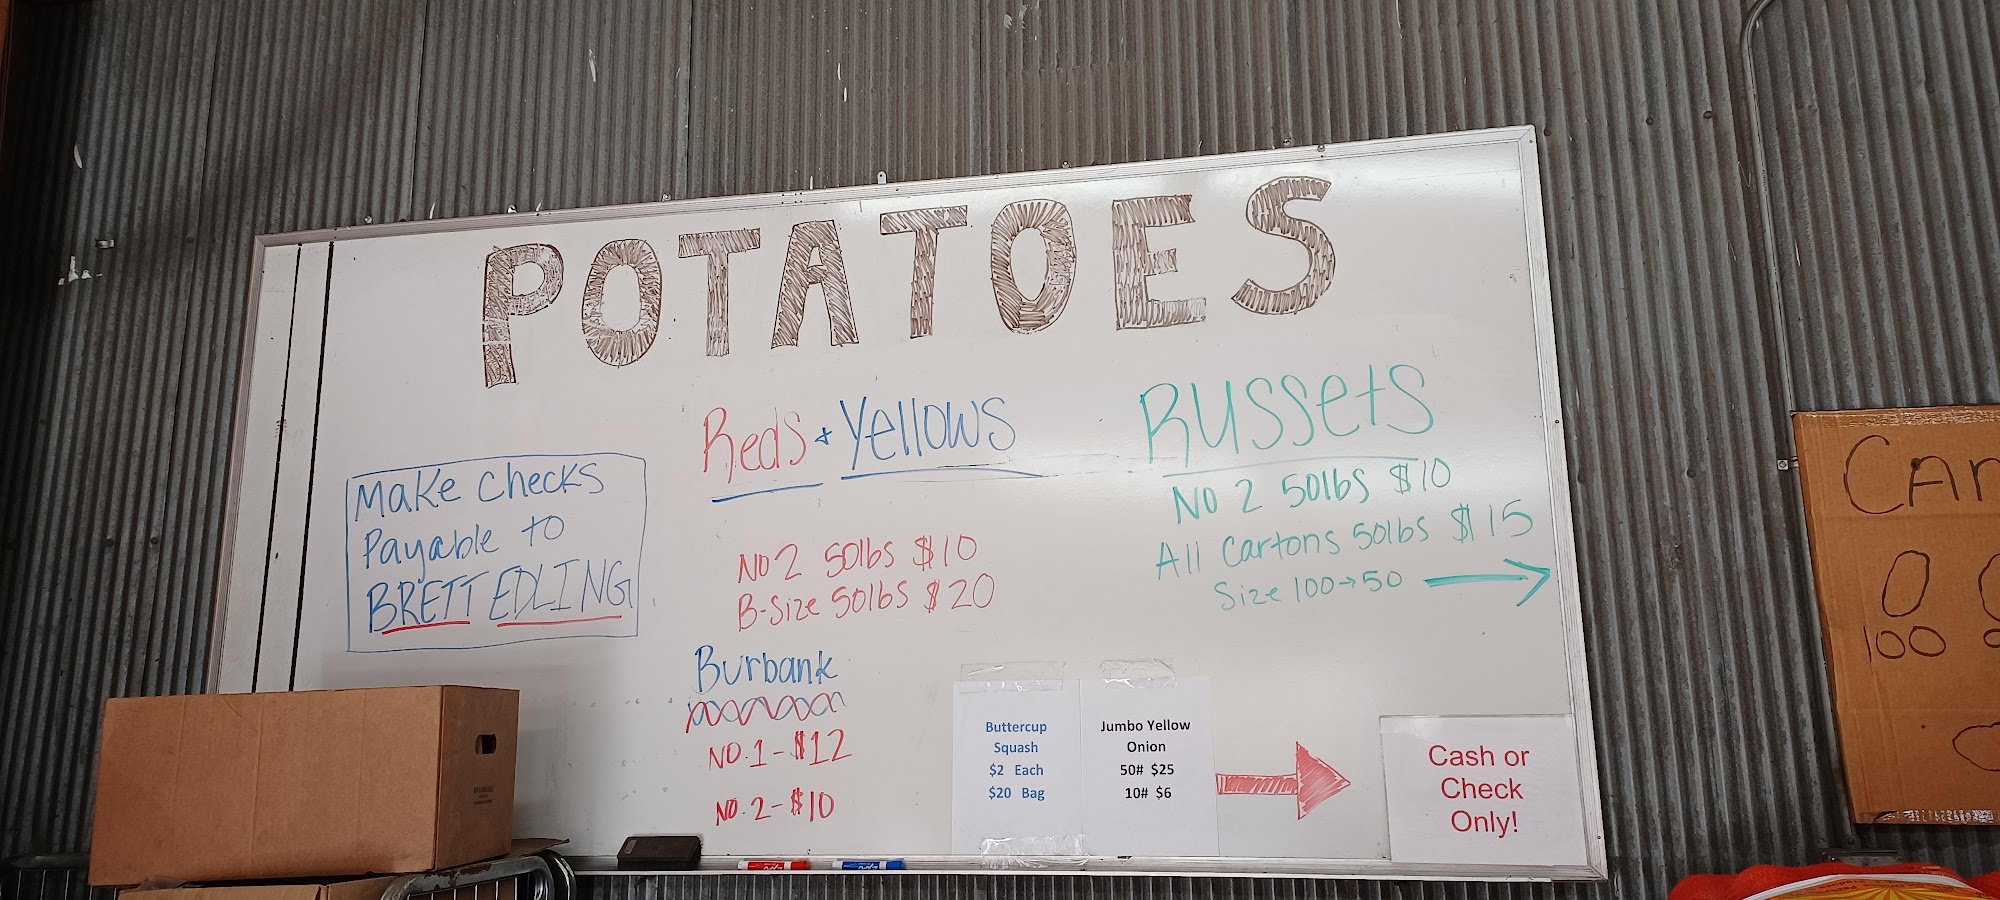 POTATOES
Make checks
Payable to
BRETT EDLING
Reds + Yellows
NO 2 50lbs $10
B-Size 50lbs $20
Burbank
NO.1-$12
NO.2-$10
Russets
NO 2 50lbs $10
All Cartons 50lbs $15
Size 100→50
Buttercup
Squash
$2 Each
$20 Bag
Jumbo Yellow
Onion
50# $25
10# $6
Cash or
Check
Only!
100